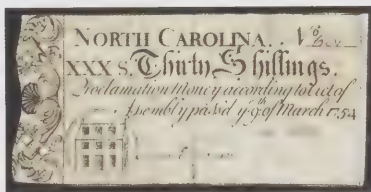 NORTH CAROLINA. No
XXX S. Thirty Shillings.
Proclamation Money according to Act of
Assembly pass'd ye 9th of March 1754